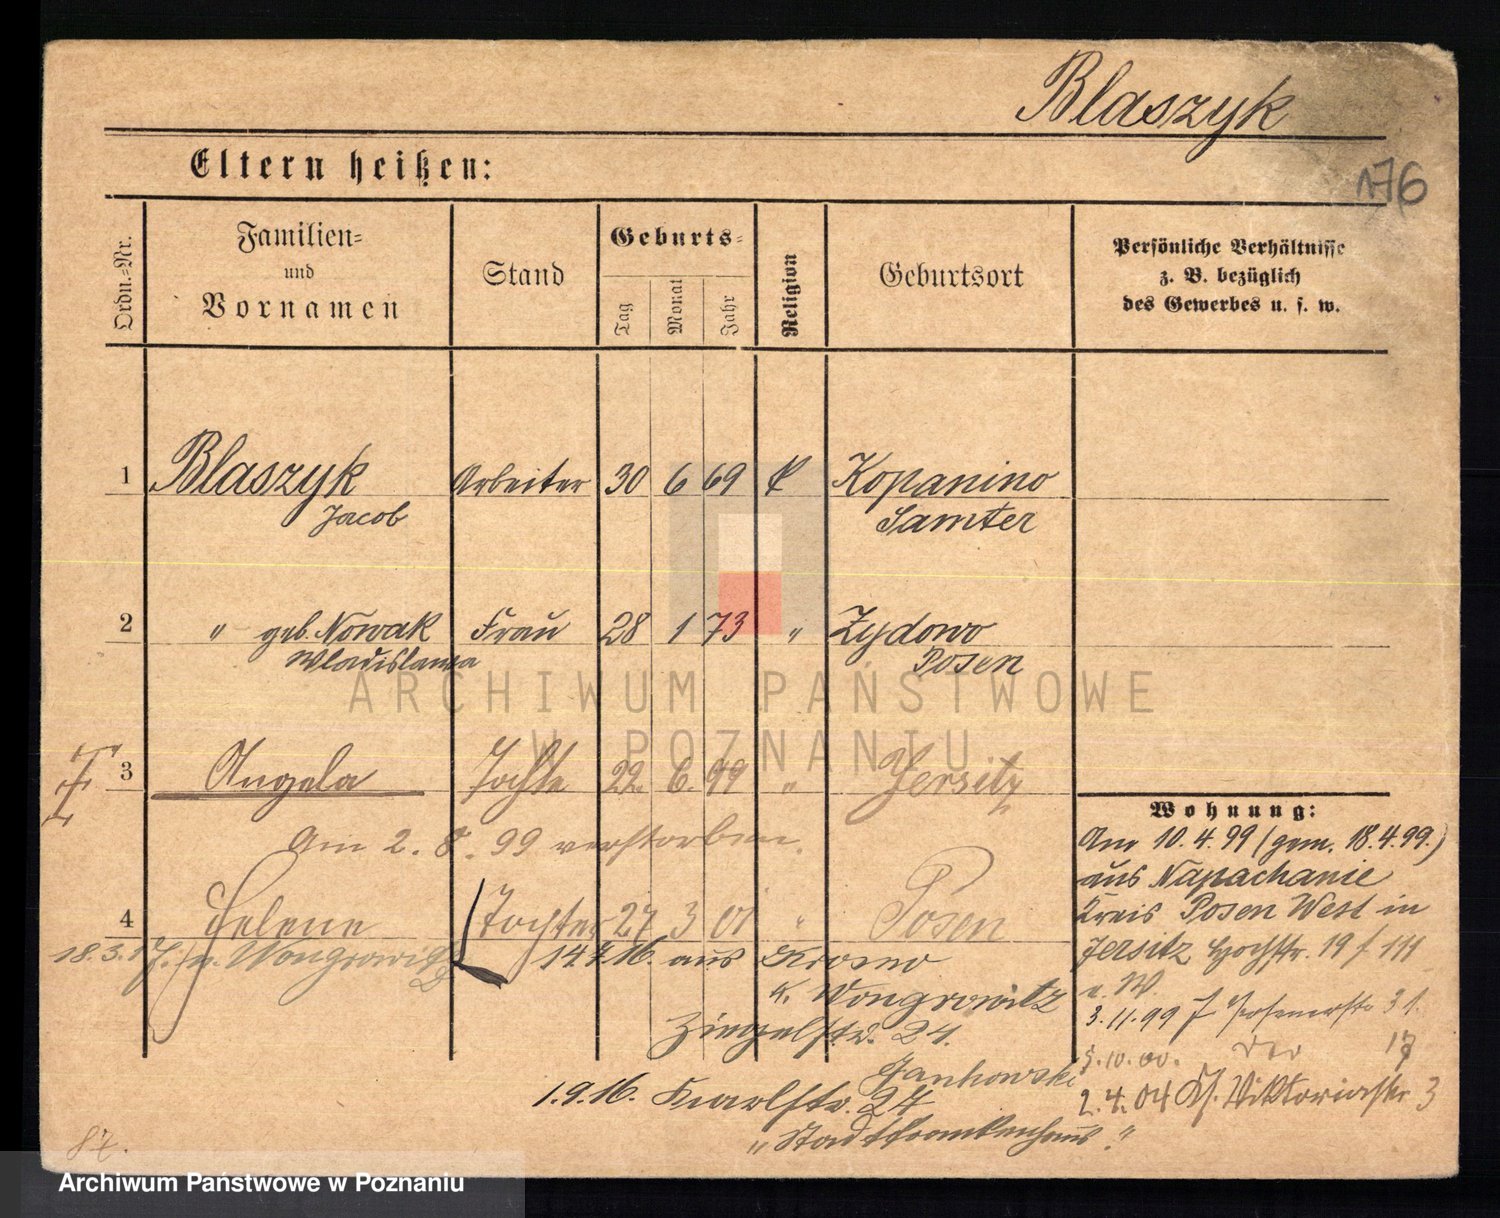 Blaszyk
Eltern heißen:
176
Ordn.-Nr.
Familien-
und
Vornamen
Stand
Geburts-
Tag
Monat
Jahr
Religion
Geburtsort
Persönliche Verhältnisse
z. B. bezüglich
des Gewerbes u. s. w.
1 Blaszyk Arbeiter 30 6 69 k Kopanino
Jacob Samter
2 " geb. Nowak Frau 28 1 73 " Zydowo
Wladislawa Posen
3 Angela Tochter 22. 6. 99 " Jersitz
Am 2. 8. 99 verstorben.
4 Helene Tochter 27 3 01 " Posen
18.3.17. n. Wongrowitz
14.7.16. aus Krosno
K. Wongrowitz
Ziegelstr. 24.
Jankowski
1.9.16. Karlstr. 24
"Stadtkrankenhaus."
Wohnung:
Am 10.4.99 (gem. 18.4.99.)
aus Napachanie
Kreis Posen West in
Jersitz Hochstr. 19 f III
u. W.
3.11.99 J Posenerstr 31.
5.10.00. 17
2.4.04 Viktoriastr 3
ARCHIWUM PAŃSTWOWE
W POZNANIU
Archiwum Państwowe w Poznaniu